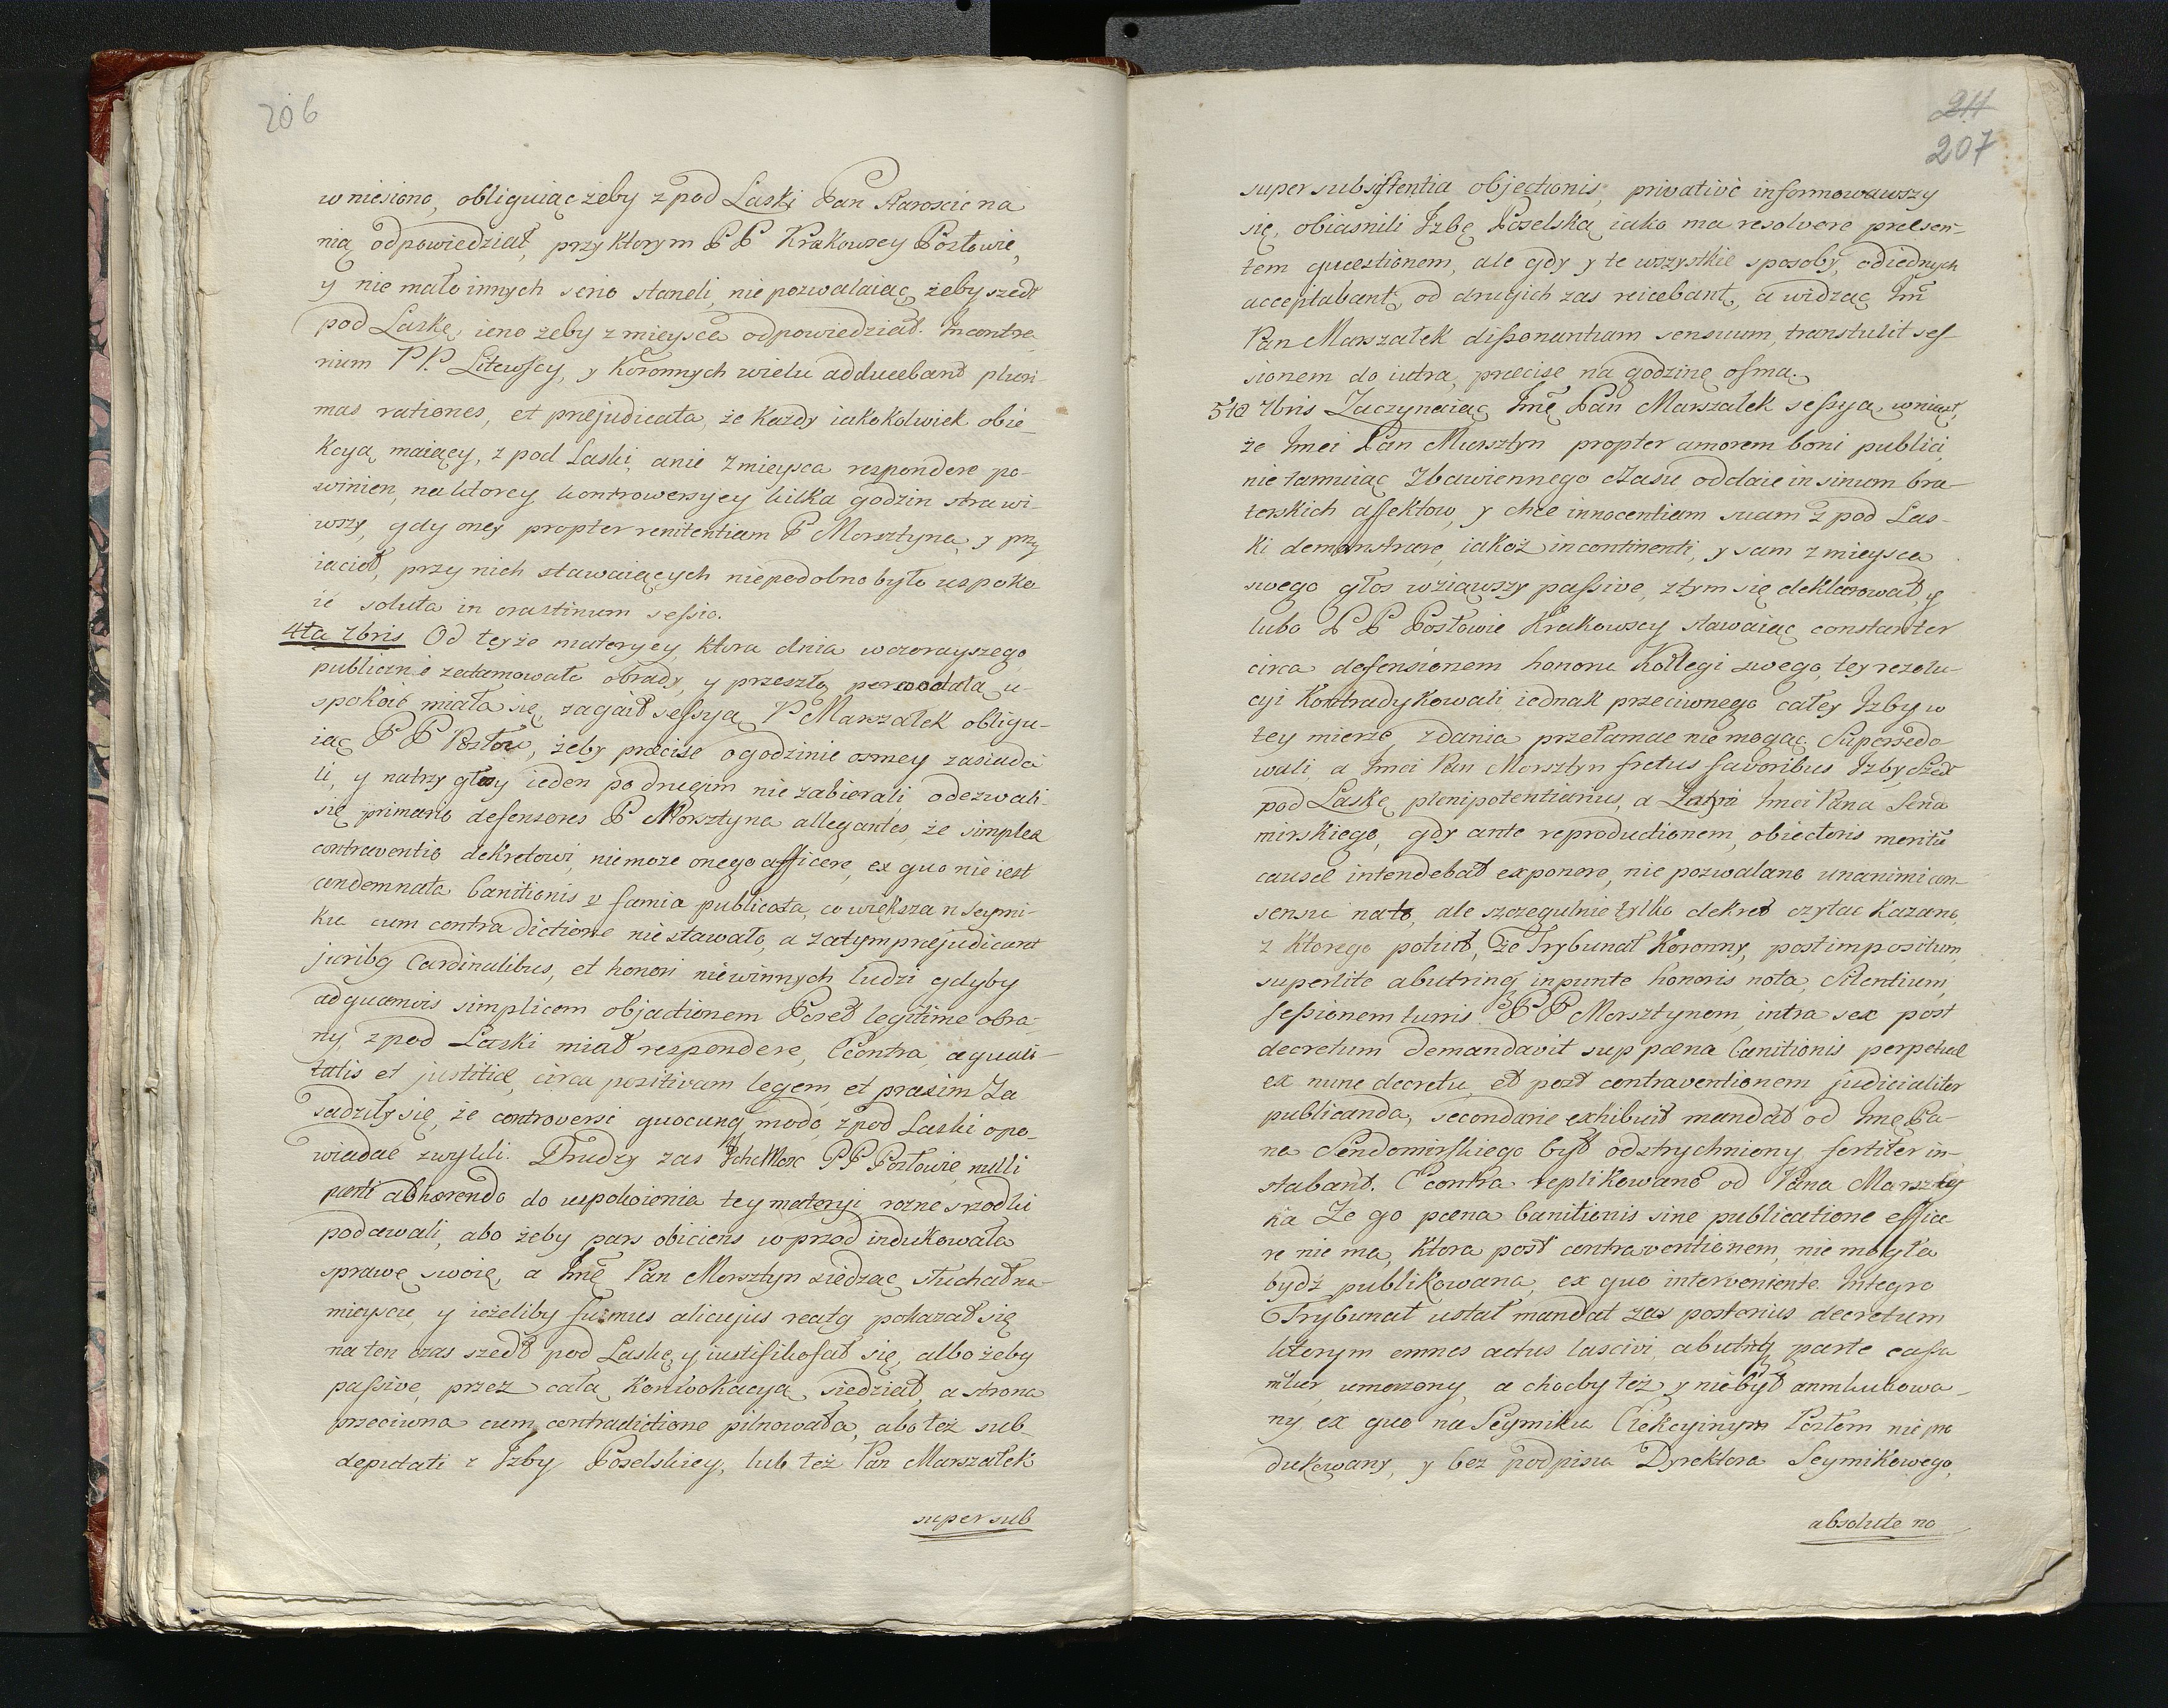 206
wniesiono, obliguiąc żeby z pod Laski Pan Staroscic na
nią odpowiedział, przy ktorym PP Krakowscy Posłowie,
y nie mało innych serio staneli, nie pozwalaiąc, żeby szedł
pod Laskę, ieno żeby z mieysca odpowiedział. In contra
rium PP. Litewscy, y Koronnych wielu adducebant pluri-
mas rationes, et praejudicata, że Kazdy iakokolwiek obie-
kcyą maiący, z pod Laski, a nie z mieysca respondere po-
winien, na ktorey kontrowersyjey kilka godzin strawi-
wszy, gdy oney propter renitentiam P Morsztyna, y przy
iacioł, przy nich stawaiących niepodobno było uspoko
ić soluta in crastinum sessio.
4ta 7bris Od teyże materyey, ktora dnia wczorayszego
publicznie zatamowała obrady, y przeszłą u-
spokoić miała się, zagaił sessyą P Marszałek obligu-
iąc PP Posłow, żeby praecise o godzinie osmey zasiada
li, y na trzy głosy ieden po drugim nie zabierali, odezwali
się primario defensores P Morsztyna allegantes, że simplex
contraventio dekretowi, nie moze onego afficere, ex quo nie iest
condemnata banitionis y famia publicata, co większa n Seymi-
ku cum contradictione nie stawało, a zatym praejudicaret
juribq Cardinalibus, et honori niewinnych ludzi gdyby
ad quamvis simplicem objectionem Poseł legitime obra-
ny, z pod Laski miał respondere, Econtra, aequali-
tatis et justitiae, circa positivam legem, et praxim Za
sadziły się, że controversi quocunq modo, z pod Laski opo-
wiadać zwykli. Drudzy zas Ich Mosc PP Posłowie, nulli
parti adhaerendo do uspokoienia tey materyi rozne srzodki
podawali, abo żeby pars obiciens wprzod indukowała
sprawę swoię, a Jmę Pan Morsztyn siedząc słuchał na
mieyscu, y ieżeliby fumus alicujus reatq pokazał się
na ten czas szedł pod Laskę, y iustifikował się, albo żeby
passive, przez całą Konwokacyą, siedział, a strona
przeciwna cum contradictione pilnowała, abo też sub-
deputati z Izby Poselskiey, lub też Pan Marszałek
super sub
211
207
super subsistentia objectionis, privative informowawszy
się, obiasnili Izbę Poselską iako ma resolvere praesen-
tem quaestionem, ale gdy y te wszystkie sposoby, od iednych
acceptabant, od drugich zas reicebant, a widząc Jm
Pan Marszałek dissonantiam sensuum, transtulit ses-
sionem do iutra, praecise na godzinę osmą.
5ta 7bris Zaczynaiąc Jmę Pan Marszałek sessyą, wniosł,
że Jmci Pan Morsztyn propter amorem boni publici,
nie tamuiąc zbawiennego czasu oddaie in sinum bra-
terskich affektow, y chce innocentiam suam z pod Las-
ki demonstrare, iakoż incontinenti, y sam z mieysca
swego głos wziąwszy passive, z tym się deklarował, y
lubo PP Posłowie Krakowscy stawaiąc constanter
circa defensionem honoru Kollegi swego, tey rezolu-
cyi Kontradykowali iednak przeciwnego całey Izby w
tey mierze zdania przełamac nie mogąc Supersedo
wali, a Jmci Pan Morsztyn fretus favoribus Izby, szedł
pod Laskę plenipotentiarius, a Zatym Jmci Pana Sendo
mirskiego, gdy ante reproductionem, obiectoris meritu
causae intendebat exponere, nie pozwalano unanimi con-
sensu na to, ale szczegulnie tylko dekret czytac kazano,
z ktorego patuit, że Trybunał Koronny, post impositum
superlite ab utrinq, in puncto honoris nota, Silentium,
sessionem turris PP Morsztynom, intra sex post
decretum demandavit sup paena banitionis perpetuae
ex nunc decretu, et post contraventionem judicialiter
publicanda, secondarie exhibuit mandat od Jmę Pa-
na Sendomirskiego był odstrychniony, fortiter in-
stabant. Econtra replikowano od Pana Marszałj
ka Ze go paena banitionis sine publicatione effice-
re nie ma, ktora post contraventionem, nie mogła
bydż publikowana, ex quo interveniente Integro
Trybunał ustał mandat zas posterius decretum
kterym omnes actus lascivi, ab utriq parte cassa
ntur, umorzony, a choćby też y nie był anmhukowa-
ny ex quo na Seymiku Elekcyinym Posłem nie pro
dukowany, y bez podpisu Dyrektora Seymikowego,
absolute no